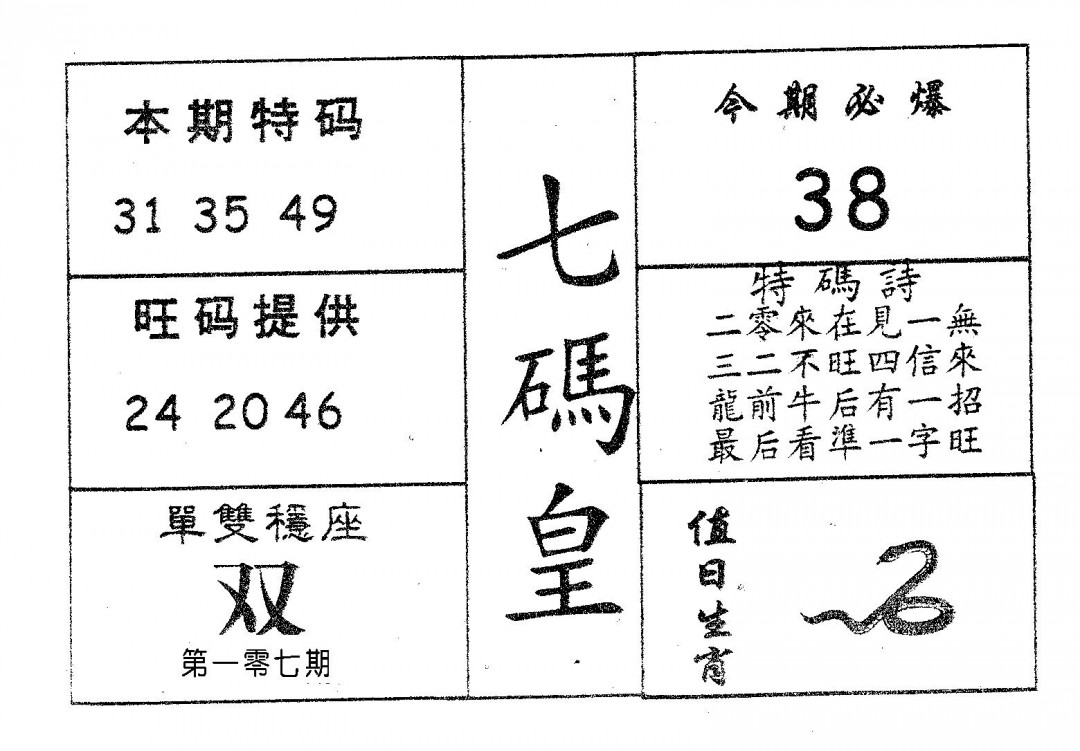 本期特码
31 35 49
旺码提供
24 20 46
單雙穩座
双
第一零七期
七碼皇
今期必爆
38
特碼詩
二零來在見一無
三二不旺四信來
龍前牛后有一招
最后看準一字旺
值日生肖